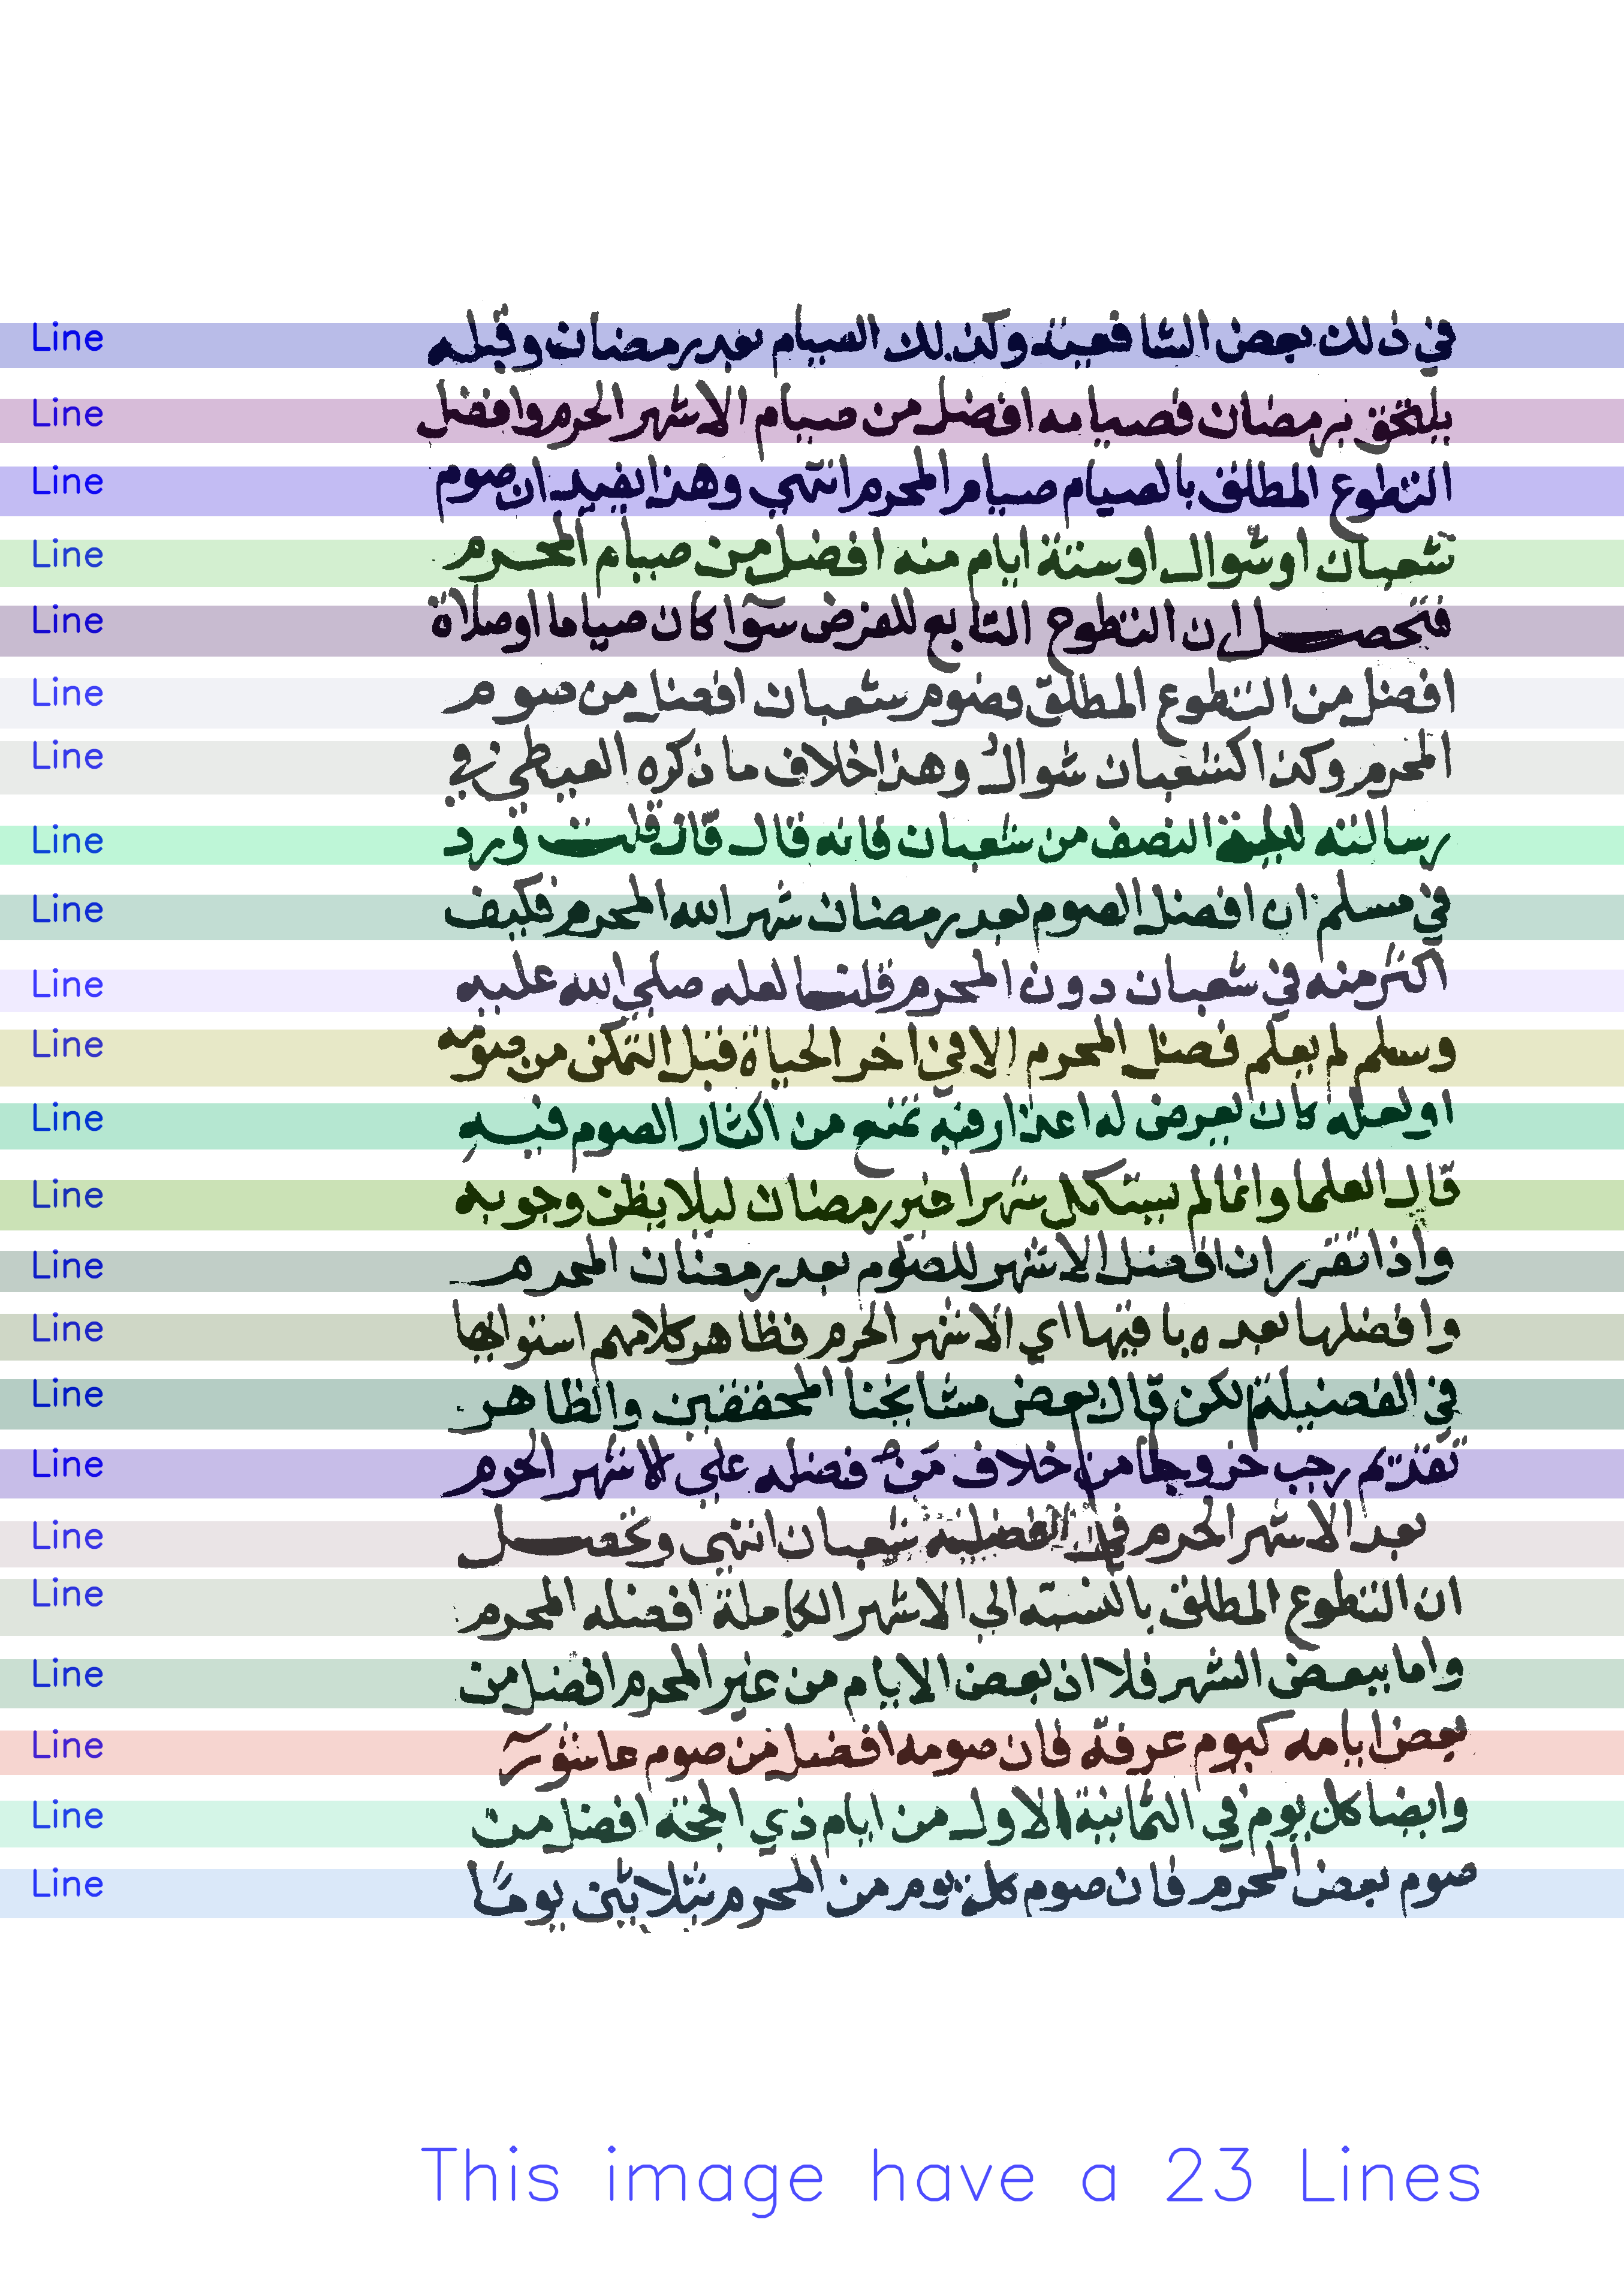 Line في ذلك بعض الشافعية وكذلك الصيام بعد رمضان وقبله
Line يلتحق برمضان فصيامه افضل من صيام الاشهر الحرم وافضل
Line التطوع المطلق بالصيام صيام المحرم انتهي وهذا يفيد ان صوم
Line شعبان او شوال او ستة ايام منه افضل من صيام المحرم
Line فتحصل ان التطوع التابع للفرض سوآ كان صياما او صلاة
Line افضل من التطوع المطلق فصوم شعبان افضل من صوم
Line المحرم وكذا كشعبان شوال وهذا خلاف ما ذكره الغيطي في
Line رسالته ليلة النصف من شعبان فانه قال فان قلت ورد
Line في مسلم ان افضل الصوم بعد رمضان شهر الله المحرم فكيف
Line اكثر منه في شعبان دون المحرم قلت لعله صلي الله عليه
Line وسلم لم يعلم فضل المحرم الا في اخر الحياة قبل التمكن من صومه
Line او لعله كان يعرض له اعذار فيه تمنع من اكثار الصوم فيه
Line قال العلما وانما لم يستكمل شهرا غير رمضان ليلا يظن وجوبه
Line واذا تقرر ان افضل الاشهر للصوم بعد رمضان المحرم
Line وافضلها بعده باقيها اي الاشهر الحرم فظاهر كلامهم استواها
Line في الفضيلة لكن قال بعض مشايخنا المحققين والظاهر
Line تقديم رجب خروجا من خلاف من فضله علي الاشهر الحرم
Line بعد الاشهر الحرم في الفضيلة شعبان انتهي وتحصل
Line ان التطوع المطلق بالنسبة الي الاشهر الكاملة افضله المحرم
Line واما ببعض الشهر فلا اذ بعض الايام من غير المحرم افضل من
Line بعض ايامه كيوم عرفة فان صومه افضل من صوم عاشورآ
Line وايضا كل يوم في الثمانية الاول من ايام ذي الحجة افضل من
Line صوم بعض المحرم فان صوم كل يوم من المحرم بثلاثين يوما
This image have a 23 Lines